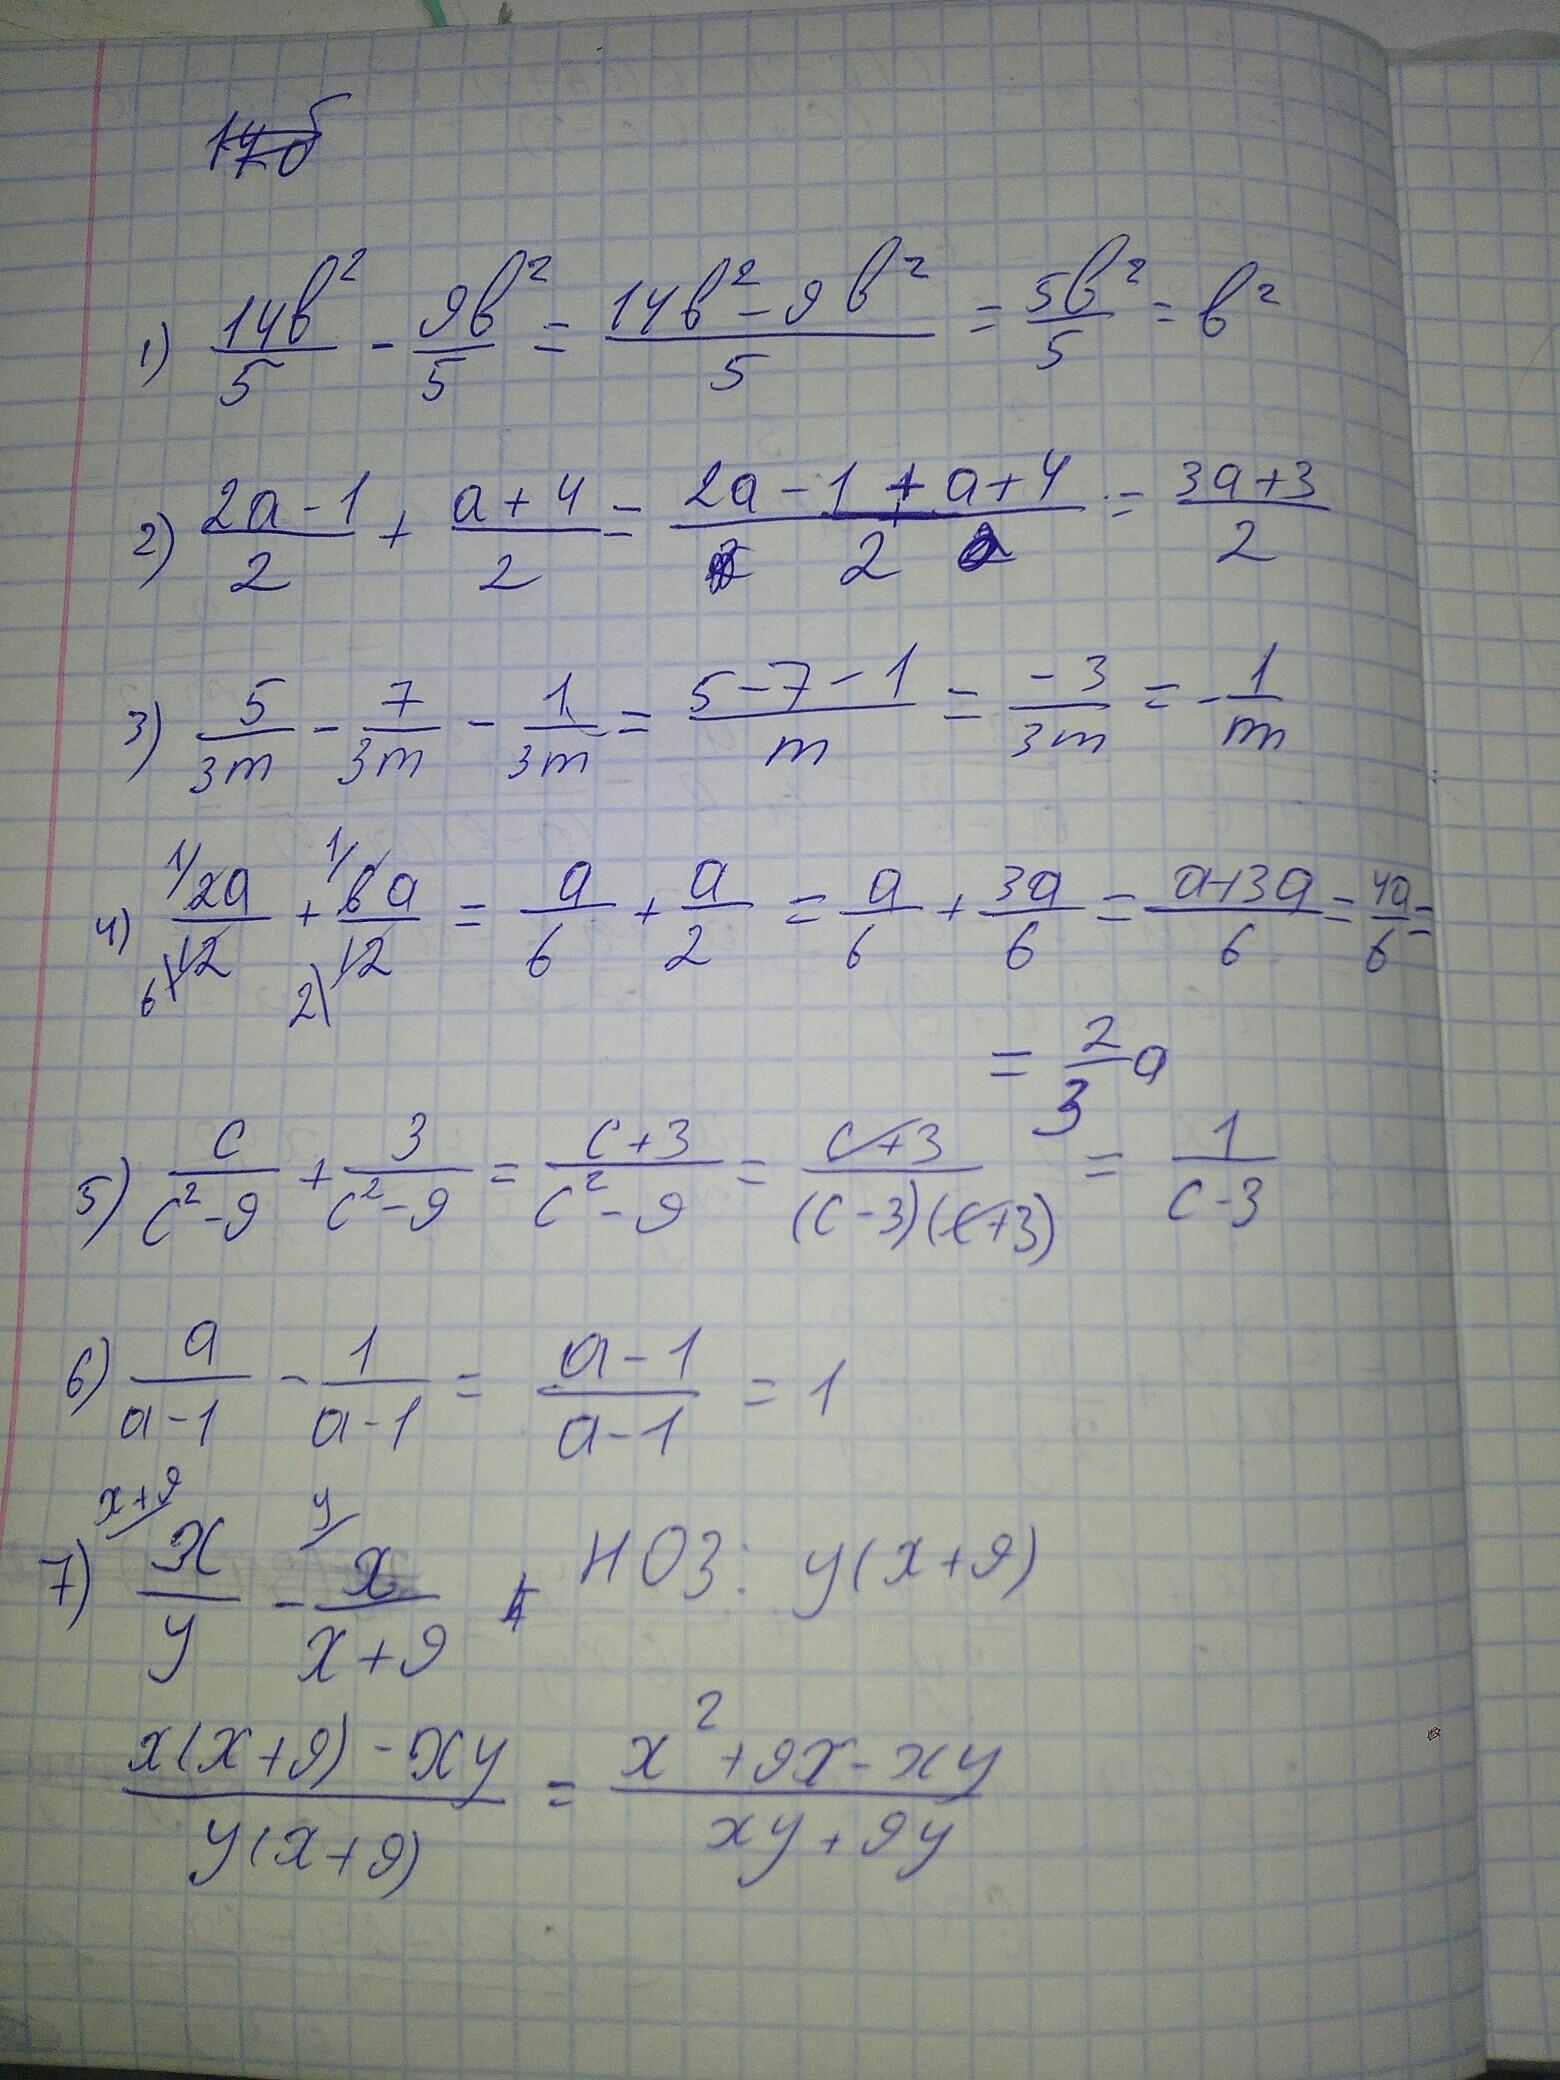 1) 14b²/5 - 9b²/5 = (14b² - 9b²)/5 = 5b²/5 = b²
2) (2a - 1)/2 + (a + 4)/2 = (2a - 1 + a + 4)/2 = (3a + 3)/2
3) 5/3m - 7/3m - 1/3m = (5 - 7 - 1)/m = -3/3m = -1/m
4) 2a/12 + 6a/12 = a/6 + a/2 = a/6 + 3a/6 = (a + 3a)/6 = 4a/6 =
= 2/3 a
5) c/(c² - 9) + 3/(c² - 9) = (c + 3)/(c² - 9) = (c + 3)/((c - 3)(c + 3)) = 1/(c - 3)
6) a/(a - 1) - 1/(a - 1) = (a - 1)/(a - 1) = 1
x+9/ y/
7) x/y - x/(x + 9) НОЗ: y(x + 9)
(x(x + 9) - xy)/(y(x + 9)) = (x² + 9x - xy)/(xy + 9y)